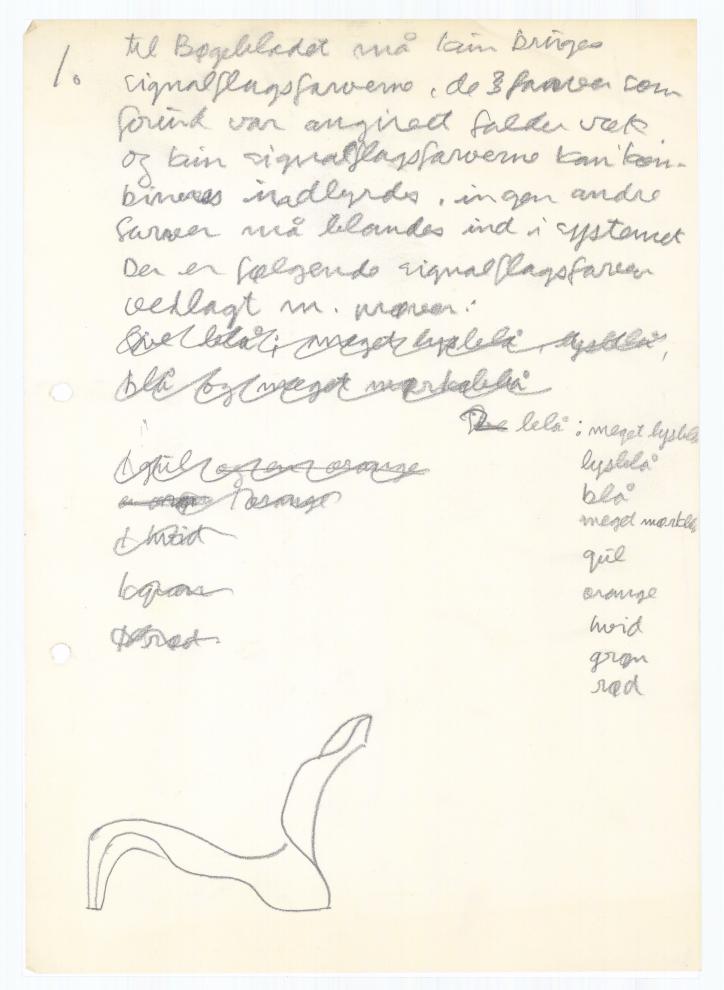 1.
til Bøgebladet må kun bringes
signalflagsfarverne, de 3 farver som
forind var angivet falder væk
og kun signalflagsfarverne kan kom-
bineres indbyrdes, ingen andre
farver må blandes ind i systemet
Der er følgende signalflagsfarver
vedlagt m. prøver:
blå; meget lysblå, lysblå,
blå og meget mørkeblå
blå: meget lysblå
1 gul og en orange
lysblå
1 orange
blå
1 hvid
meget mørkeblå
gul
1 grøn
orange
1 rød
hvid
grøn
rød